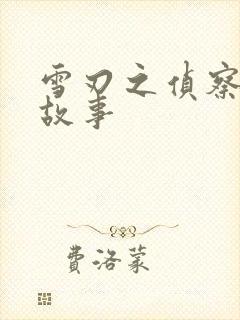 雪刃之偵察
故事
費洛蒙